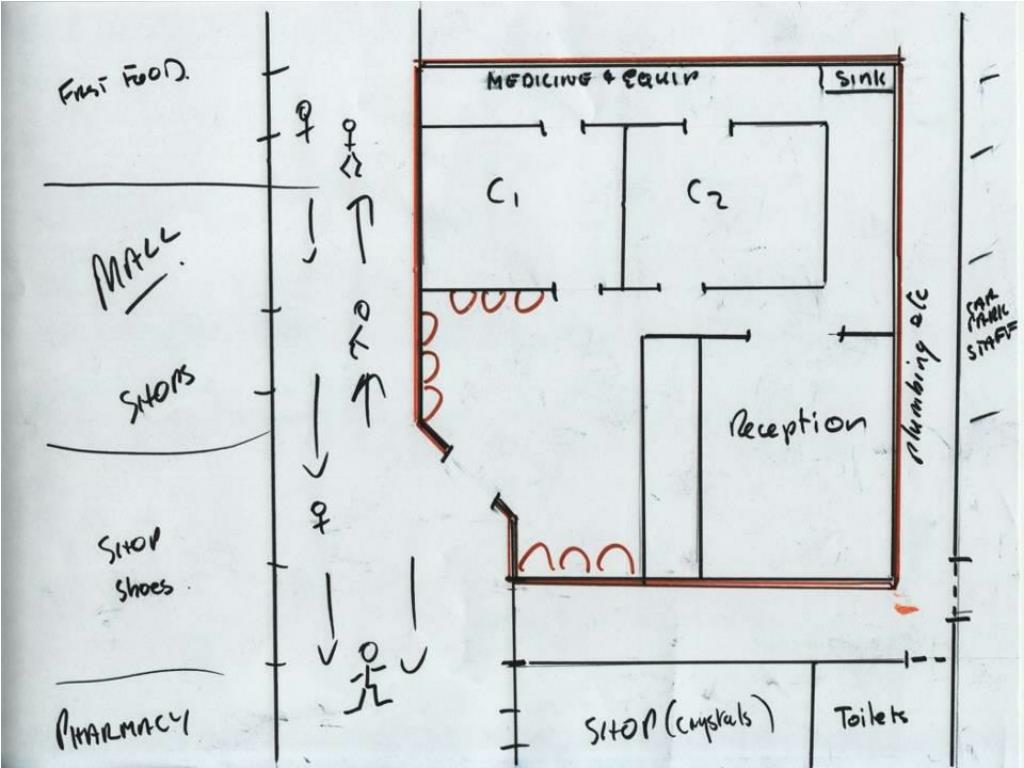 FAST FOOD.
MALL.
SHOPS
SHOP
Shoes
PHARMACY
MEDICINE & EQUIP
Sink
C1
C2
Reception
Plumbing etc
CAR
PARK
STAFF
SHOP (crystals)
Toilets